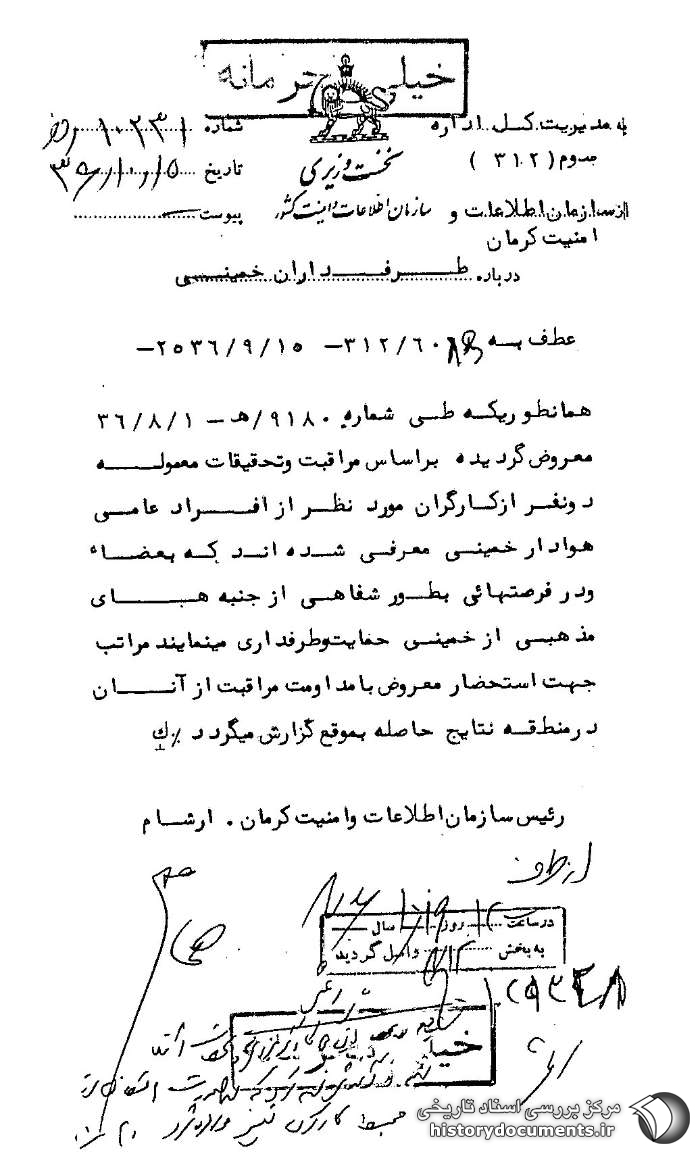 خیلی محرمانه
به مدیریت کل اداره
سوم (۳۱۲)
از سازمان اطلاعات و
امنیت کرمان
نخست وزیری
سازمان اطلاعات و امنیت کشور
شماره ۱۰۲۳۱
تاریخ ۳۶/۱۰/۵
پیوست
درباره طرفداران خمینی
عطف به ۳۱۲/۶۰۸۹ - ۲۵۳۶/۹/۱۵-
همانطوریکه طی شماره ۹۱۸۰/هـ - ۳۶/۸/۱
معروض گردیده براساس مراقبت وتحقیقات معموله
دونفر ازکارگران مورد نظر از افراد عامی
هوادار خمینی معرفی شده اند که بعضاء
ودر فرصتهائی بطور شفاهی از جنبه های
مذهبی از خمینی حمایت وطرفداری مینمایند مراتب
جهت استحضار معروض بامداومت مراقبت از آنان
درمنطقه نتایج حاصله بموقع گزارش میگردد ٪ ك
رئیس سازمان اطلاعات وامنیت کرمان . ارشام
از طرف
در ساعت روز سال
به بخش ۳۱۲ واصل گردید
خیلی
مرکز بررسی اسناد تاریخی
historydocuments.ir